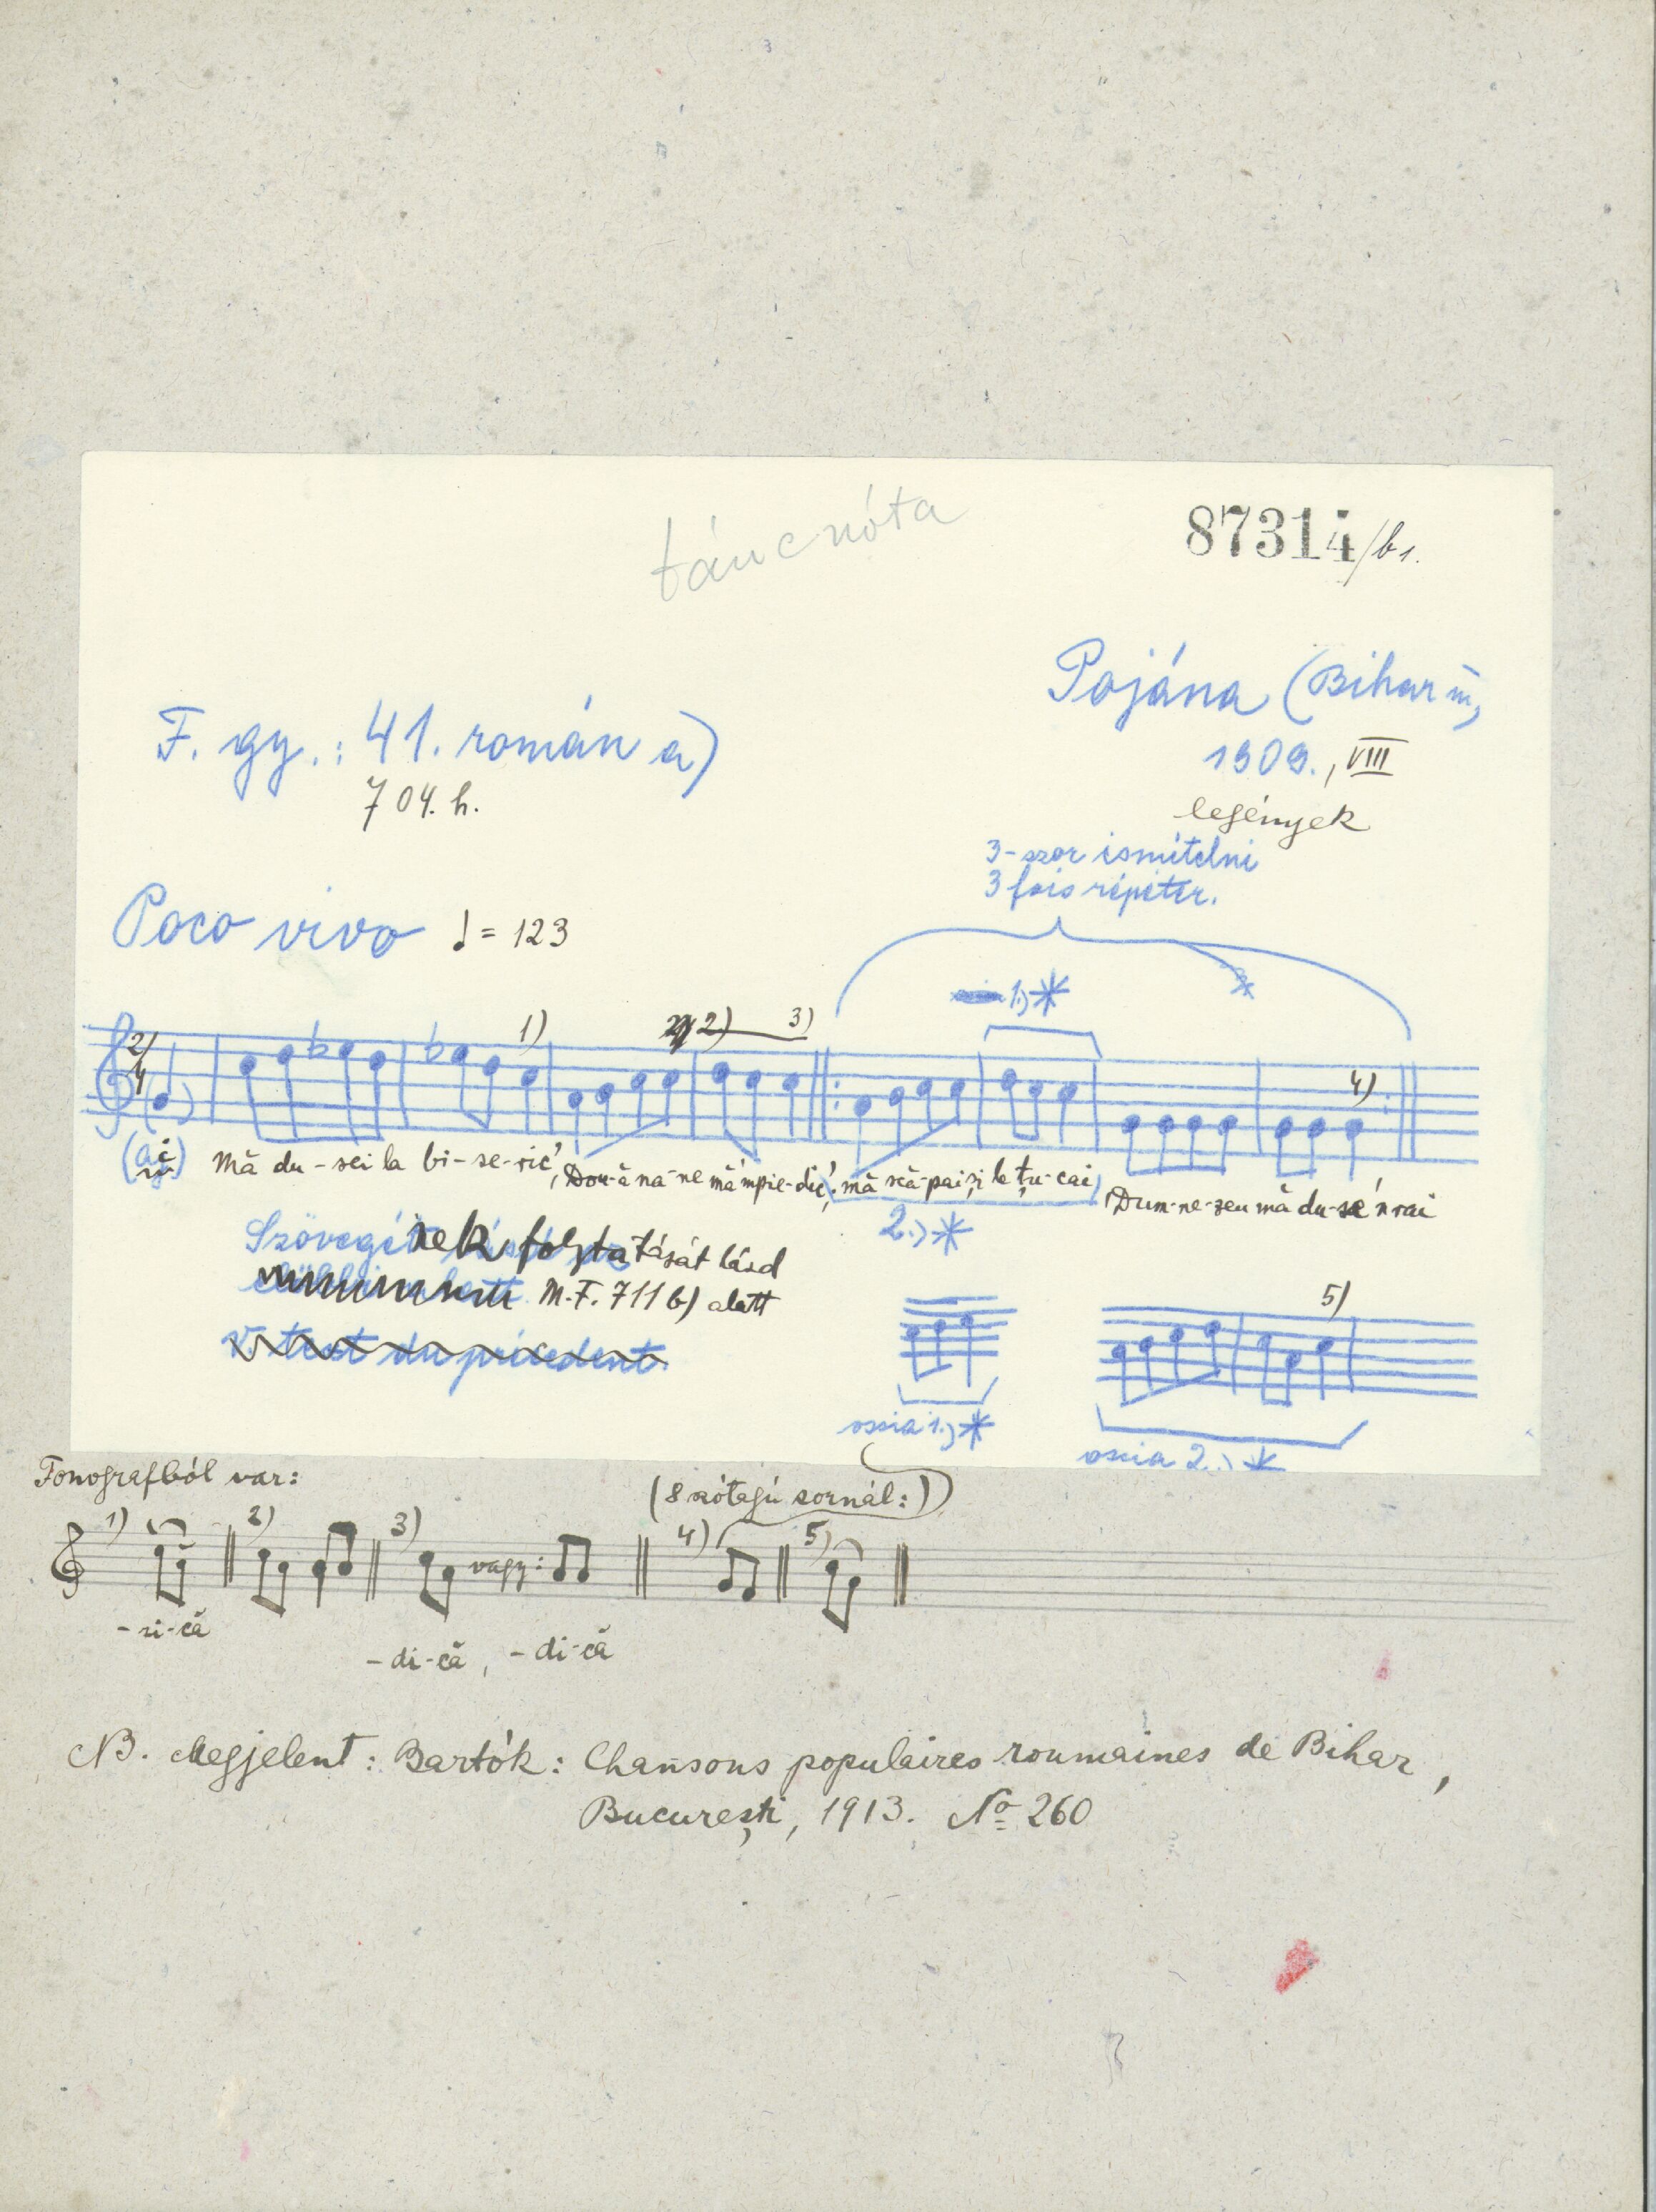 táncnóta
87314/b1.
Pojána (Bihar m.)
F. gy.: 41. román a)
1909., VIII
704. h.
legények
3-szor ismételni
3 fois répéter.
Poco vivo ♩= 123
1.) *
1) 2) 3) 4)
2/4
(ai) Mă du-sei la bi-se-ric', Dou-ă na-ne mă'mpie-dic', mă scă-pai și le țu-cai, Dum-ne-zeu mă du-se'n rai
2.) *
Szövegének folytatását lásd
M.F. 711 b) alatt
V. text du précedent.
5)
ossia 1.) *
ossia 2.) *
Fonografból var:
(8 szótagú sornál:)
1) 2) 3) vagy: 4) 5)
-ri-că
-di-că, -di-că
NB. Megjelent: Bartók: Chansons populaires roumaines de Bihar,
București, 1913. No 260